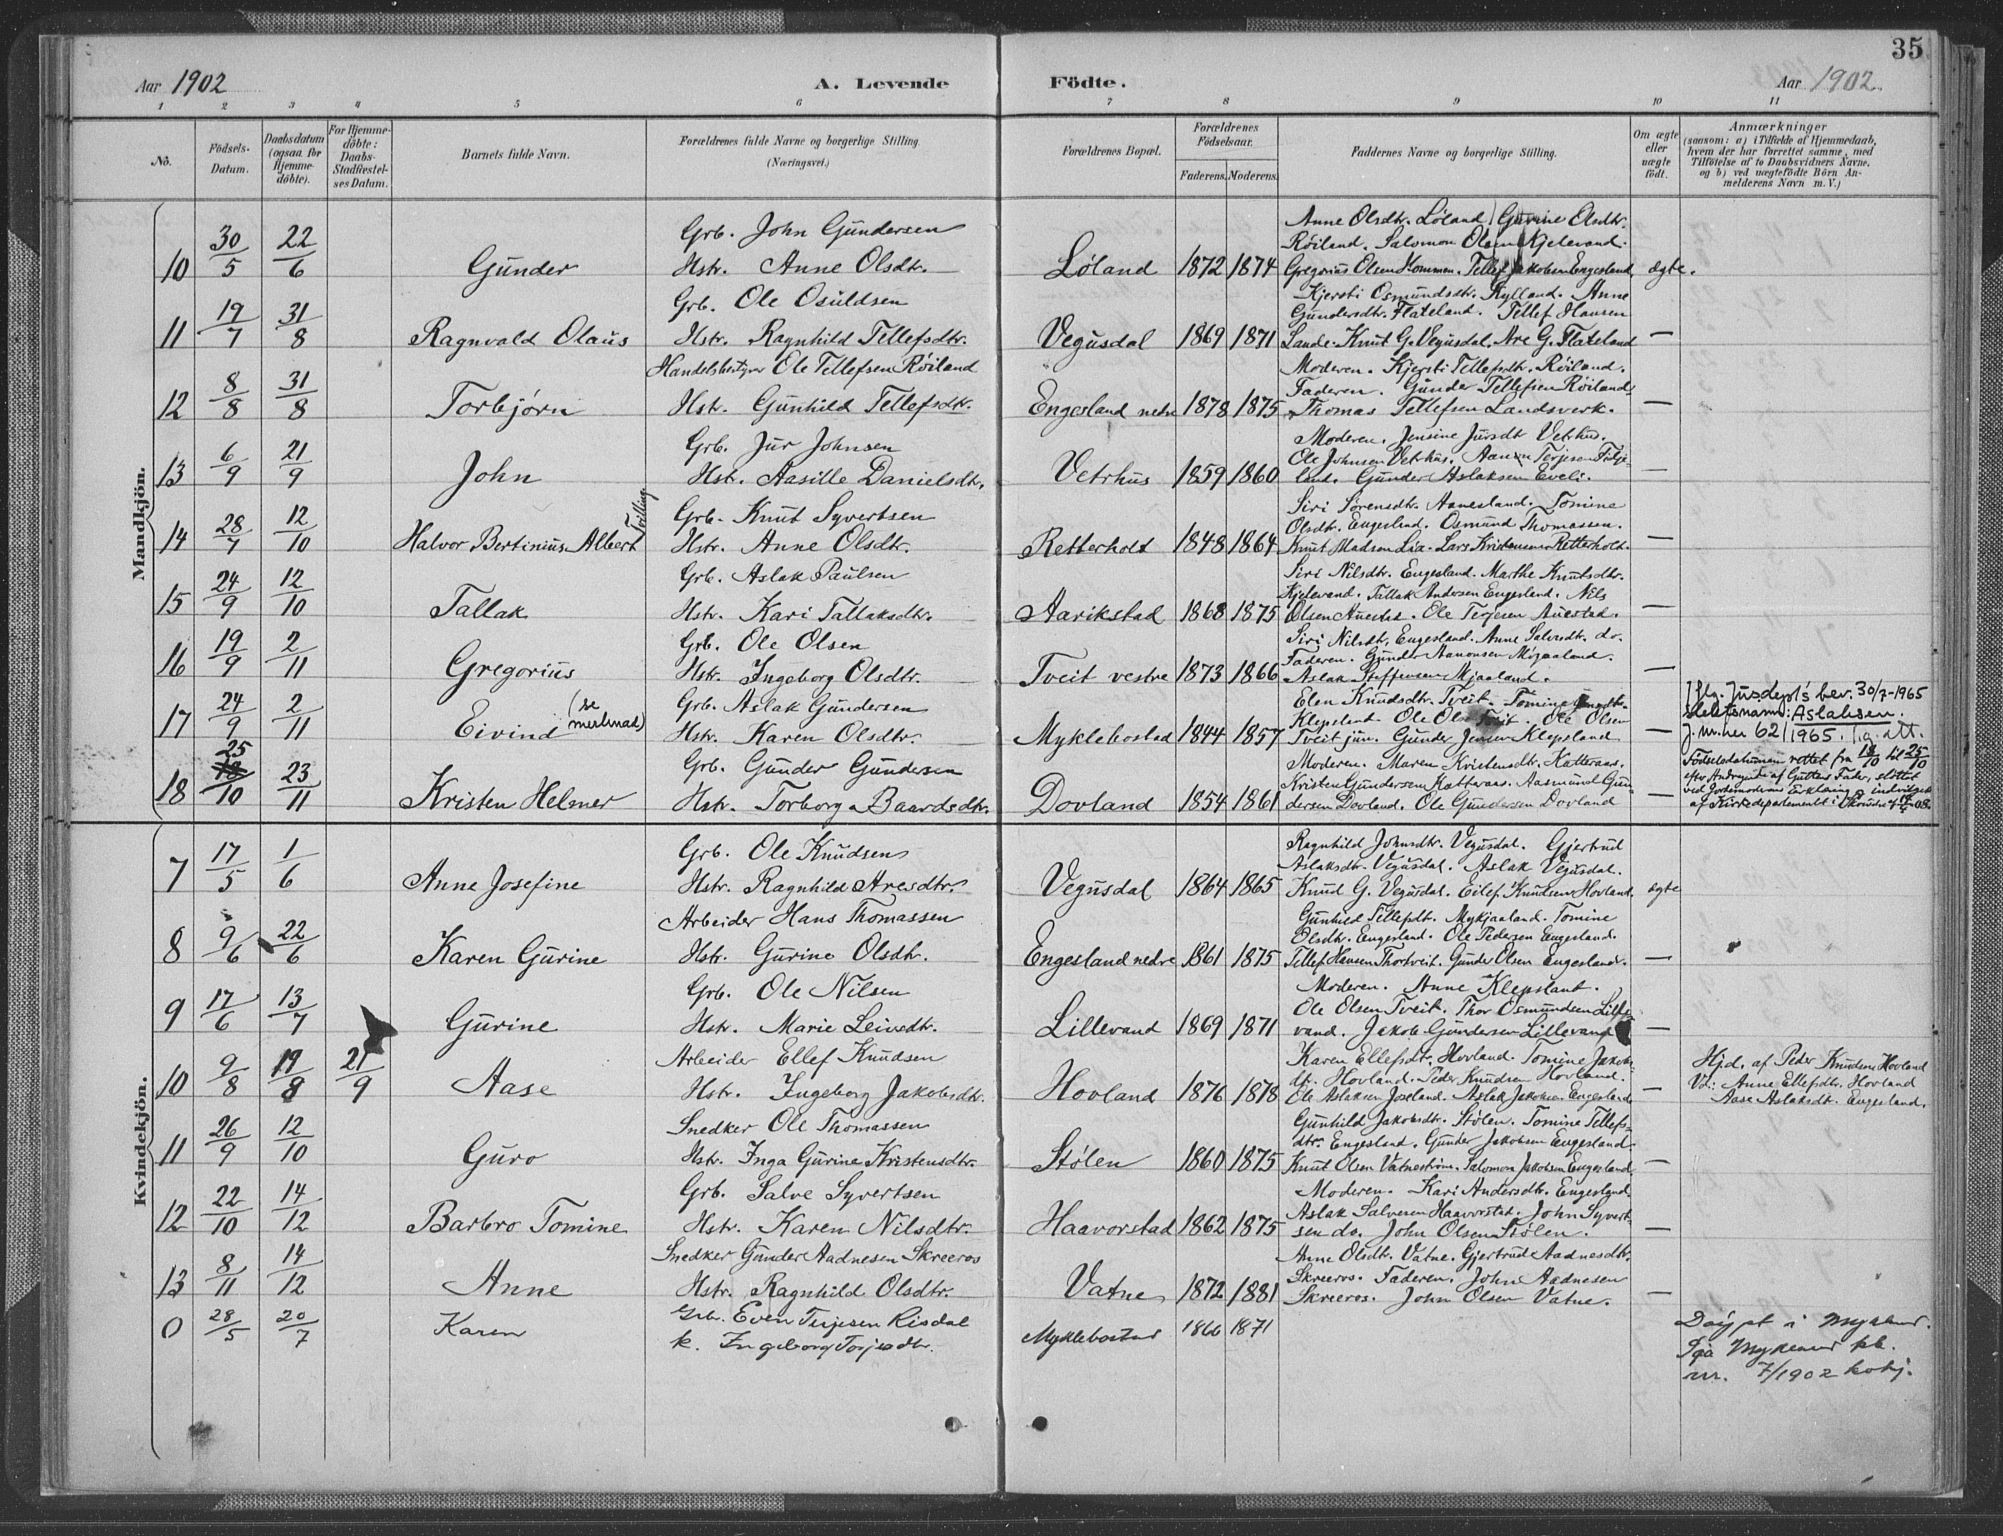 35
Aar 1902 A. Levende Födte. Aar 1902
1 2 3 4 5 6 7 8 9 10 11
Nô. Födsels-Datum. Daabsdatum (ogsaa for Hjemmedöbte). For Hjemmedöbte: Daabs-Stadfæstelses Datum. Barnets fulde Navn. Forældrenes fulde Navne og borgerlige Stilling. (Næringsvei.) Forældrenes Bopæl. Forældrenes Födselsaar. Faderens. Moderens. Faddernes Navne og borgerlige Stilling. Om ægte eller uægte födt. Anmærkninger (saasom: a) i Tilfælde af Hjemmedaab, hvem der har forrettet samme, med Tilföielse af to Daabsvidners Navne, og b) ved uægtefödte Börn Anmelderens Navn m. V.)
Mandkjön.
Grb. John Gundersen Anne Olsdtr. Løland. Gurine Olsdtr.
Røiland. Salomon Olsen Kjelevand.
10 30/5 22/6 Gunder Hstr. Anne Olsdtr. Løland 1872 1874 Gregorius Olsen Hommen. Tellef Jakobsen Engesland ægte.
Grb. Ole Osuldsen Kjersti Osmundsdtr. Rylland. Anne
Gundersdtr. Flateland. Tellef Hansen
11 19/7 31/8 Ragnvald Olaus Hstr. Ragnhild Tellefsdtr. Vegusdal 1869 1871 Lande. Knut G. Vegusdal. Are G. Flateland —
Handelsbestyrer Ole Tellefsen Røiland Moderen. Kjersti Tellefsdtr. Røiland.
Faderen. Gunder Tellefsen Røiland.
12 8/8 31/8 Torbjørn Hstr. Gunhild Tellefsdtr. Engesland nedre 1878 1875 Thomas Tellefsen Landsverk. —
Grb. Jur Johnsen Moderen. Jensine Jursdt Vetrhus.
Ole Johnsen Vetrhus. Aanon Terjesen
13 6/9 21/9 John Hstr. Aasille Danielsdtr. Vetrhus 1859 1860 land. Gunder Aslaksen Eveli. —
Grb. Knut Syvertsen Siri Sørensdtr. Aanesland. Tomine
Olsdtr. Engesland. Osmund Thomassen.
14 28/7 12/10 Halvor Bertinius Albert Tvilling Hstr. Anne Olsdtr. Retterholt 1848 1864 Knut Madsen Lia. Lars Kristensen Retterholt. —
Grb. Aslak Paulsen Siri Nilsdtr. Engesland. Marthe Knutsdtr.
Kjelevand. Tellak Andersen Engesland. Nils
15 24/9 12/10 Tallak Hstr. Kari Tallaksdtr. Aarikstad 1868 1875 Olsen Auestad. Ole Terjesen Auestad. —
Grb. Ole Olsen Siri Nilsdt. Engesland. Anne Salvesdt. do.
Faderen. Gunder Aanonsen Mjaaland.
16 19/9 2/11 Gregorius Hstr. Ingeborg Olsdtr. Tveit vestre 1873 1866 Aslak Steffensen Mjaaland. —
Grb. Aslak Gundersen Elen Knudsdtr. Tveit. Tomine
Klepsland. Ole Olsen Tveit. Ole Olsen
17 24/9 2/11 Eivind (se merknad) Hstr. Karen Olsdtr. Myklebostad 1844 1857 Tveit jun. Gunder Jensen Klepsland — Iflg. Jusdept's bev. 30/7-1965
slektsnamn: Aslaksen.
J.nr. her 62/1965.
Grb. Gunder Gundersen Moderen. Maren Kristensdtr. Katteraas.
Kristen Gundersen Katteraas. Aasmund Gun-
18 25 18/10 23/11 Kristen Helmer Hstr. Torborg Baardsdtr. Dovland 1854 1861 dersen Dovland. Ole Gundersen Dovland — Födselsdatumen rettet fra 18/10 til 25/10
efter Andragende af Guttens Fader, støttet
ved Jordemoderens Erklæring &
af Kirkedepartementet i
Kvindekjön.
Grb. Ole Knudsen Ragnhild Johnsdtr. Vegusdal. Gjertrud
Aslaksdtr. Vegusdal. Aslak Vegusdal.
7 17/5 1/6 Anne Josefine Hstr. Ragnhild Aresdtr. Vegusdal 1864 1865 Knud G. Vegusdal. Eilef Knudsen Hovland. ægte
Arbeider Hans Thomassen Gunhild Tellefsdt. Mykjaaland. Tomine
Olsdtr. Engesland. Ole Pedersen Engesland.
8 9/6 22/6 Karen Gurine Hstr. Gurine Olsdtr. Engesland nedre 1861 1875 Tellef Hansen Thortveit. Gunder Olsen Engesland. —
Grb. Ole Nilsen Moderen. Anne Klepsland.
Ole Olsen Tveit. Thor Osmundsen Lille-
9 17/6 13/7 Gurine Hstr. Marie Leivsdtr. Lillevand 1869 1871 vand. Jakob Gundersen Lillevand —
Arbeider Ellef Knudsen Karen Ellefsdt. Hovland. Tomine Jakobs-
dt. Hovland. Peder Knudsen Hovland.
10 9/8 19/8 21/9 Aase Hstr. Ingeborg Jakobsdtr. Hovland 1876 1878 Ole Aslaksen Joreland. Aslak Jakobsen Engesland — Hjd. af Peder Knudsen Hovland
Vd: Anne Ellefsdtr. Hovland
Aase Aslaksdt. Engesland.
Snedker Ole Thomassen Gunhild Jakobsdt. Stølen. Tomine Tellefs-
dtr. Engesland. Gunder Jakobsen Engesland.
11 26/9 12/10 Guro Hstr. Inga Gurine Kristensdtr. Stølen 1860 1875 Knut Olsen Vatnestrøm. Salomon Jakobsen Engesland —
Grb. Salve Syvertsen Moderen. Kari Andersdtr. Engesland.
Aslak Salvesen Haavorstad. John Syvert-
12 22/10 14/12 Barbro Tomine Hstr. Karen Nilsdtr. Haavorstad 1862 1875 sen do. John Olsen Stølen. —
Snedker Gunder Aadnesen Skreeros Anne Olsdt. Vatne. Gjertrud Aadnesdtr.
Skreeros. Faderen. John Aadnesen
13 8/11 14/12 Anne Hstr. Ragnhild Olsdtr. Vatne 1872 1881 Skreeros. John Olsen Vatne. —
0 28/5 20/7 Karen Grb. Even Terjesen Risdal Myklebostad 1866 1871 Döypt i Mykland.
k. Ingeborg Torjesdtr. Sjå Mykland kb.
nr. 7/1902 kvkj.